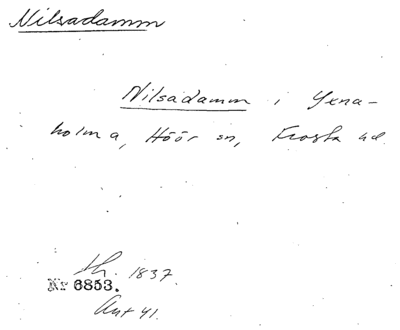 Nilsadamm
Nilsadamm i Yxna-
holma, Höör sn, Frosta hd.
Sk. 1837.
Nr 6853.
Ant 41.